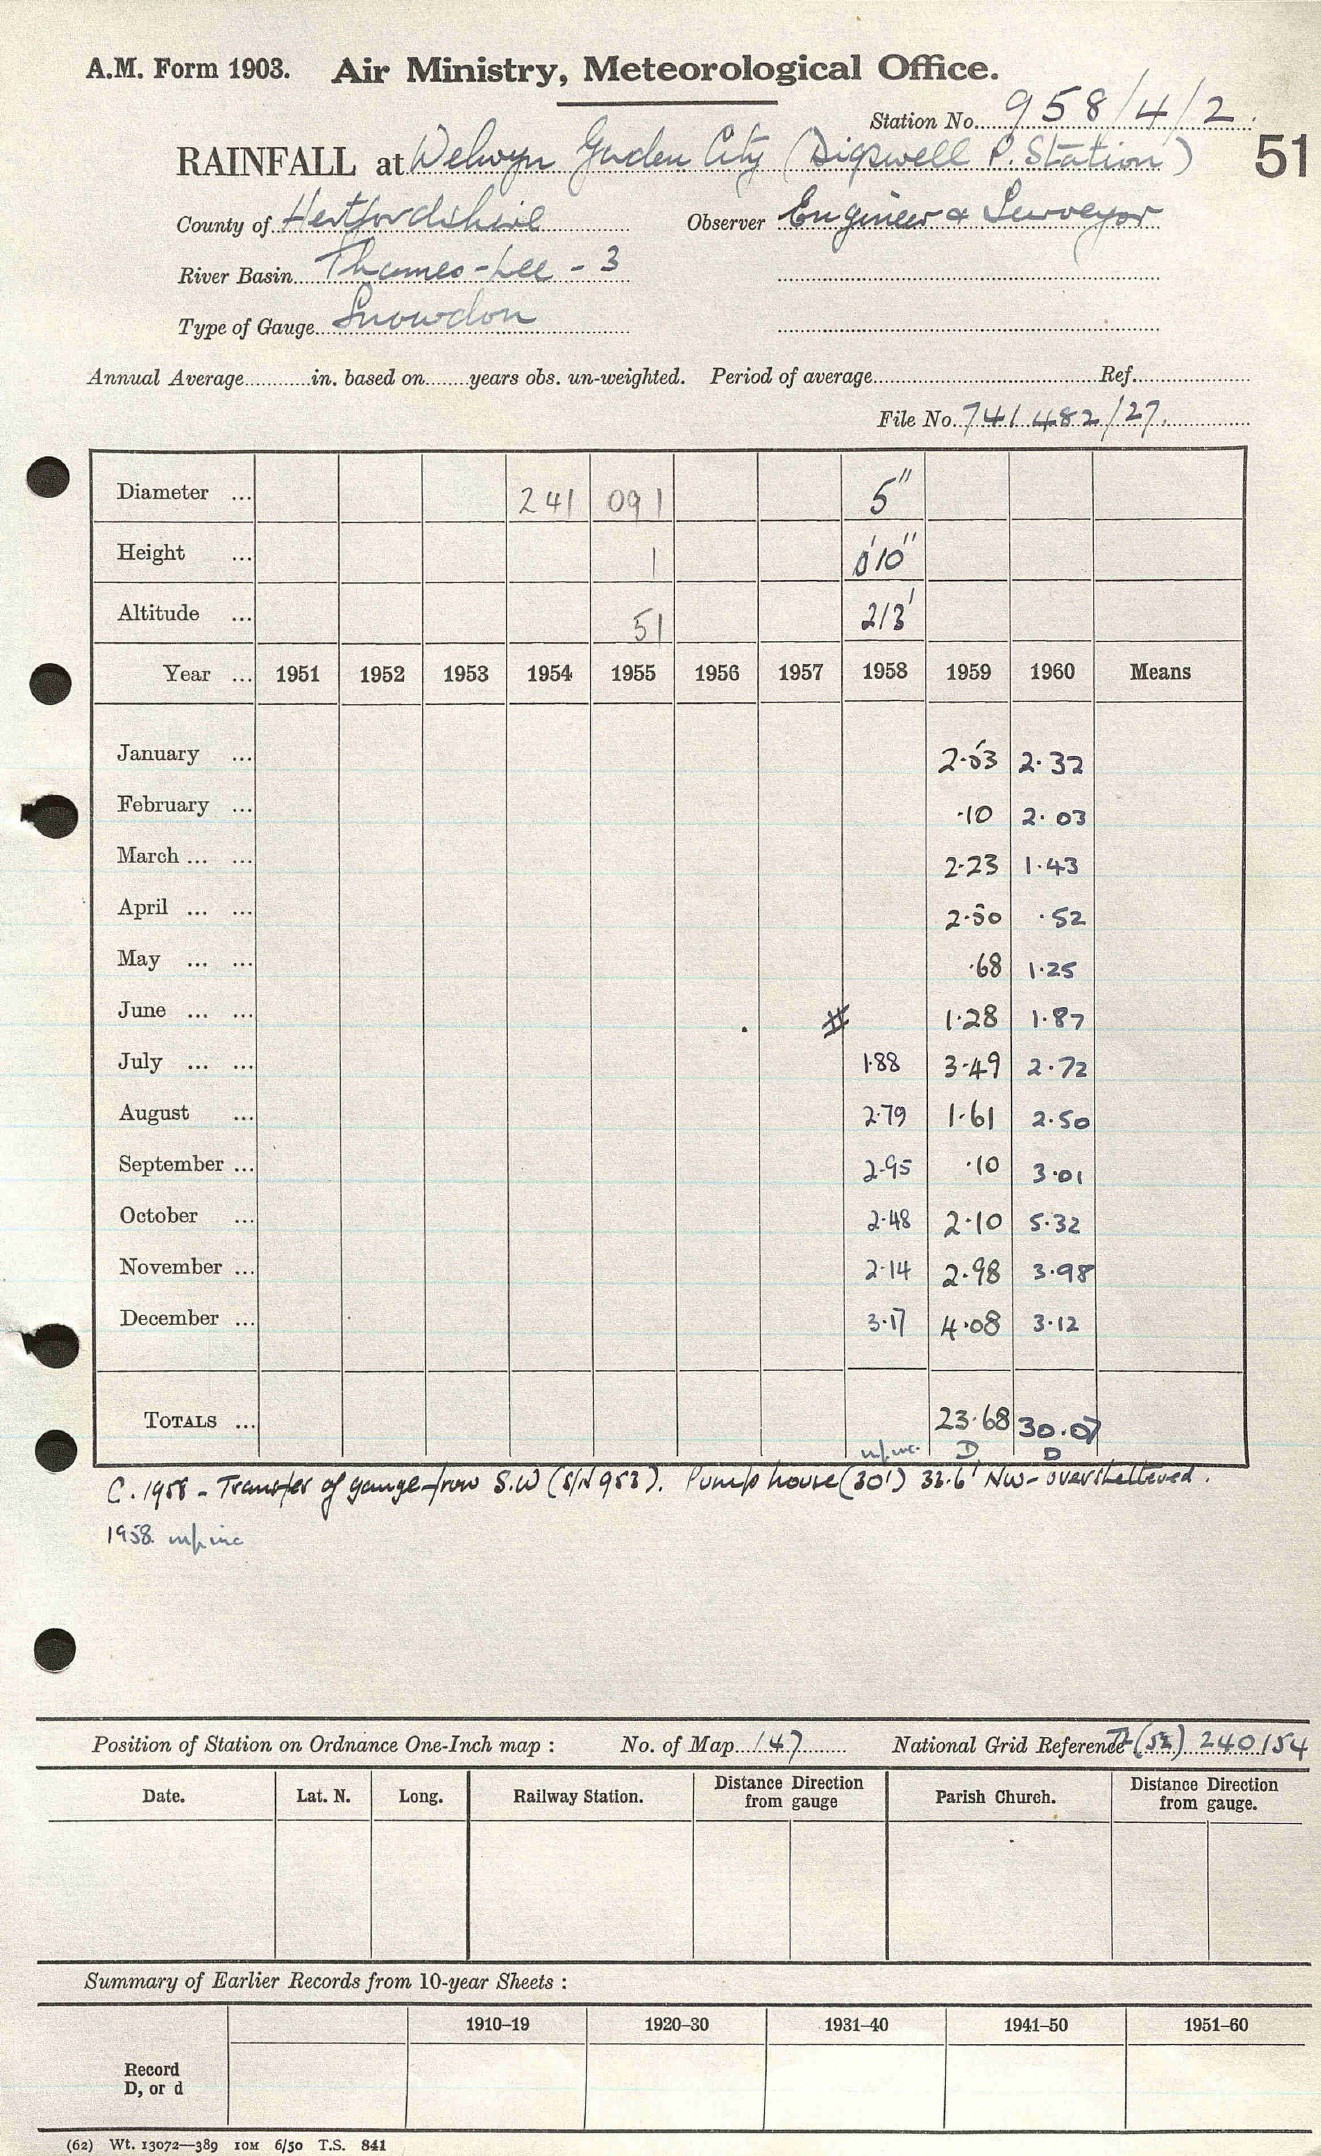 A.M. Form 1903. Air Ministry, Meteorological Office.
Station No. 958/4/2.
RAINFALL at Welwyn Garden City (Digswell P. Station) 51
County of Hertfordshire Observer Engineer & Surveyor
River Basin Thames-Lee - 3
Type of Gauge Snowdon
Annual Average in. based on years obs. un-weighted. Period of average Ref.
File No. 741482/27.
Diameter ... 241 091 5"
Height ... 1 0'10"
Altitude ... 51 213'
Year ... 1951 1952 1953 1954 1955 1956 1957 1958 1959 1960 Means
January ... 2.53 2.32
February ... .10 2.03
March ... ... 2.23 1.43
April ... ... 2.50 .52
May ... ... .68 1.25
June ... ... 1.28 1.87
July ... ... 1.88 3.49 2.72
August ... 2.79 1.61 2.50
September ... 2.95 .10 3.01
October ... 2.48 2.10 5.32
November ... 2.14 2.98 3.98
December ... 3.17 4.08 3.12
TOTALS ... 23.68 30.07
D D
C. 1958 - Transfer of gauge from S.W (S/N 953). Pump house (30') 33.6' NW - oversheltered.
1958
Position of Station on Ordnance One-Inch map : No. of Map 147 National Grid Reference TL (52) 240154
Date. Lat. N. Long. Railway Station. Distance Direction from gauge Parish Church. Distance Direction from gauge.
Summary of Earlier Records from 10-year Sheets :
1910-19 1920-30 1931-40 1941-50 1951-60
Record
D, or d
(62) Wt. 13072—389 10M 6/50 T.S. 841